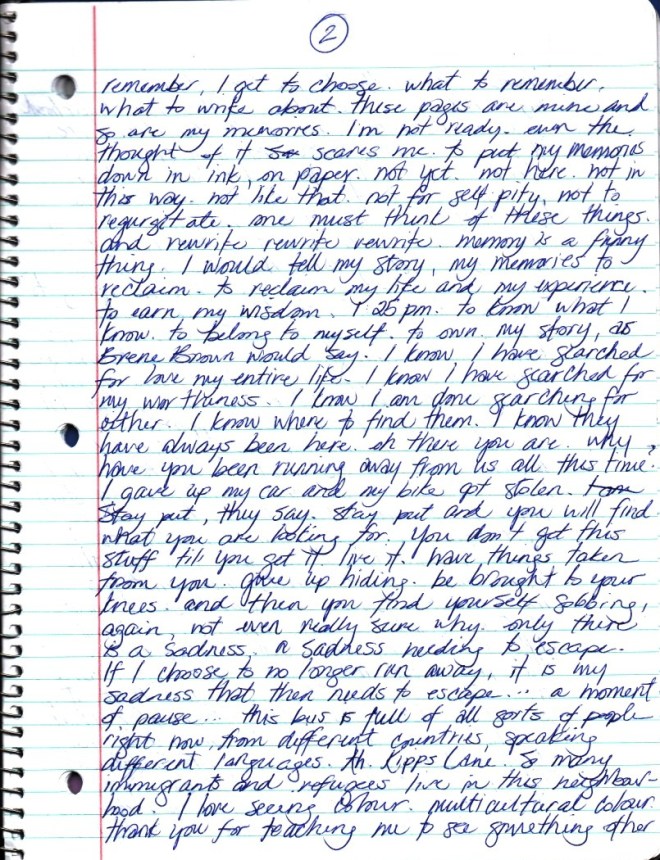 2
remember, I get to choose. what to remember.
what to write about. these pages are mine and
so are my memories. I'm not ready. even the
thought of it scares me. to put my memories
down in ink, on paper. not yet. not here. not in
this way. not like that. not for self pity, not to
regurgitate. one must think of these things.
and rewrite rewrite rewrite. memory is a funny
thing. I would tell my story, my memories to
reclaim. to reclaim my life and my experience.
to earn my wisdom. 1:25pm. to know what I
know. to belong to myself. to own my story, as
Brene Brown would say. I know I have searched
for love my entire life. I know I have searched for
my worthiness. I know I am done searching for
either. I know where to find them. I know they
have always been here. oh there you are. why
have you been running away from us all this time?
I gave up my car and my bike got stolen.
stay put, they say. stay put and you will find
what you are looking for. you don't get this
stuff till you get it. live it. have things taken
from you. give up hiding. be brought to your
knees. and then you find yourself sobbing,
again, not even really sure why. only there
is a sadness. a sadness needing to escape.
If I choose to no longer run away, it is my
sadness that then needs to escape... a moment
of pause... this bus is full of all sorts of people
right now, from different countries, speaking
different languages. Ah. Kipps Lane. So many
immigrants and refugees live in this neighbour
hood. I love seeing colour. multicultural colour.
thank you for teaching me to see something other